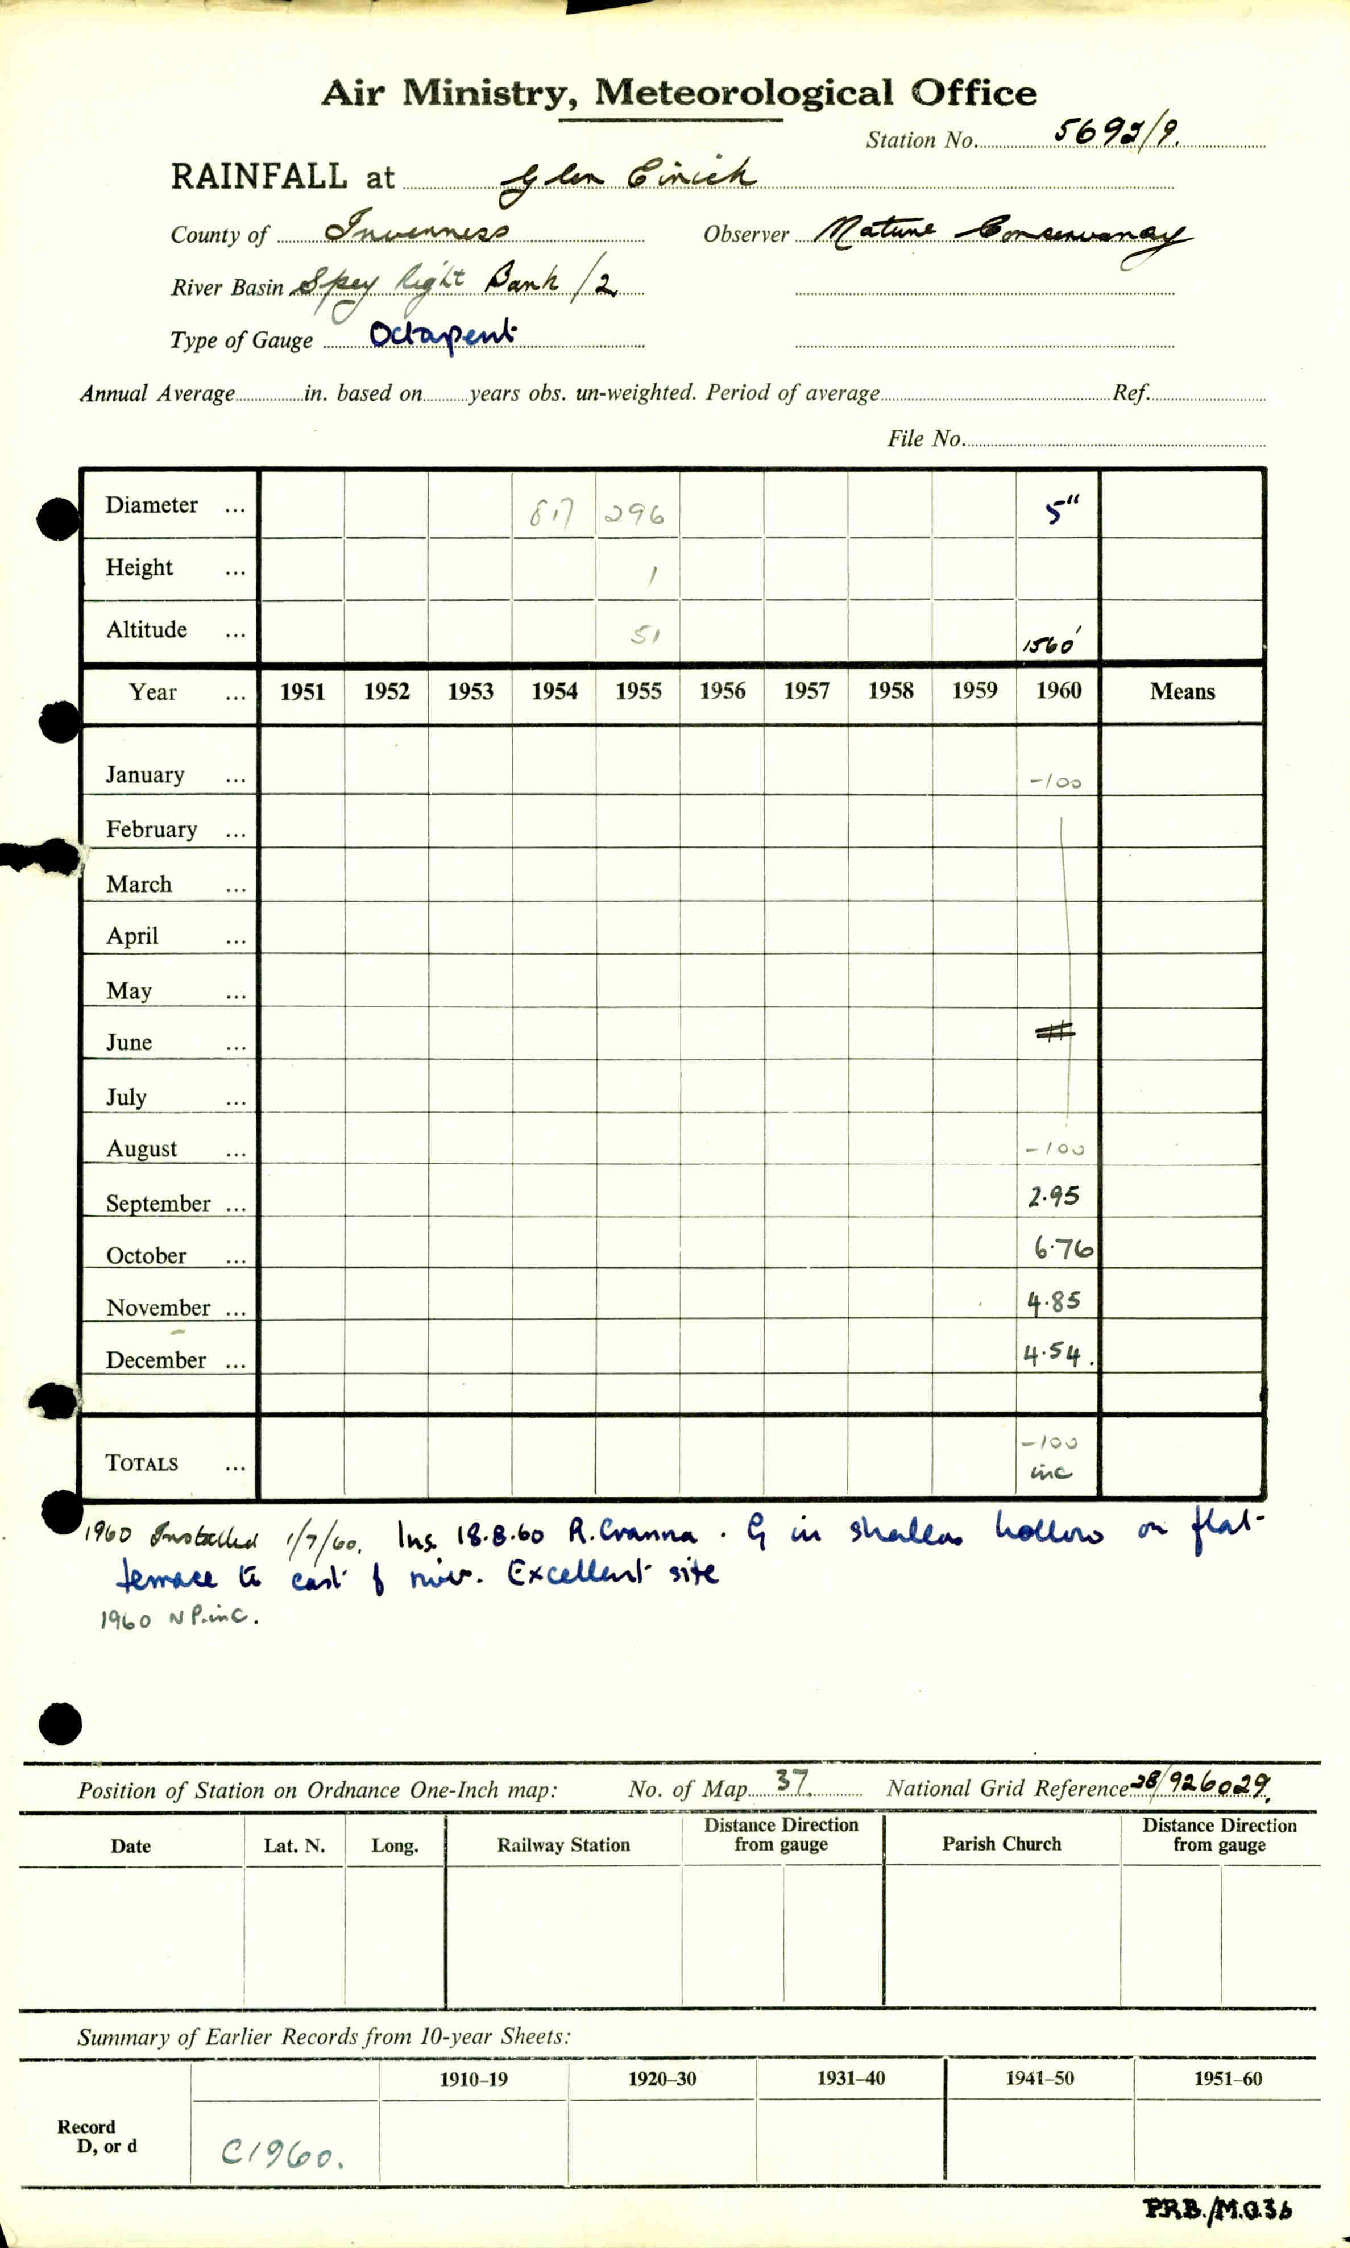 Air Ministry, Meteorological Office
Station No. 5692/9.
RAINFALL at Glen Einich
County of Inverness Observer Nature Conservancy
River Basin Spey Right Bank /2
Type of Gauge Octapent
Annual Average in. based on years obs. un-weighted. Period of average Ref.
File No.
Diameter ... 817 296 5"
Height ... 1
Altitude ... 51 1560'
Year ... 1951 1952 1953 1954 1955 1956 1957 1958 1959 1960 Means
January ... -100
February ...
March ...
April ...
May ...
June ...
July ...
August ... -100
September ... 2.95
October ... 6.76
November ... 4.85
December ... 4.54.
TOTALS ... -100
inc
1960 Installed 1/7/60. Ins. 18.8.60 R. Cranna. G in shallow hollow on flat
terrace to east of river. Excellent site
1960 NP. inc.
Position of Station on Ordnance One-Inch map: No. of Map 37. National Grid Reference 28/926029.
Date Lat. N. Long. Railway Station Distance Direction from gauge Parish Church Distance Direction from gauge
Summary of Earlier Records from 10-year Sheets:
1910-19 1920-30 1931-40 1941-50 1951-60
Record
D, or d C1960.
PRB./M.O.3b